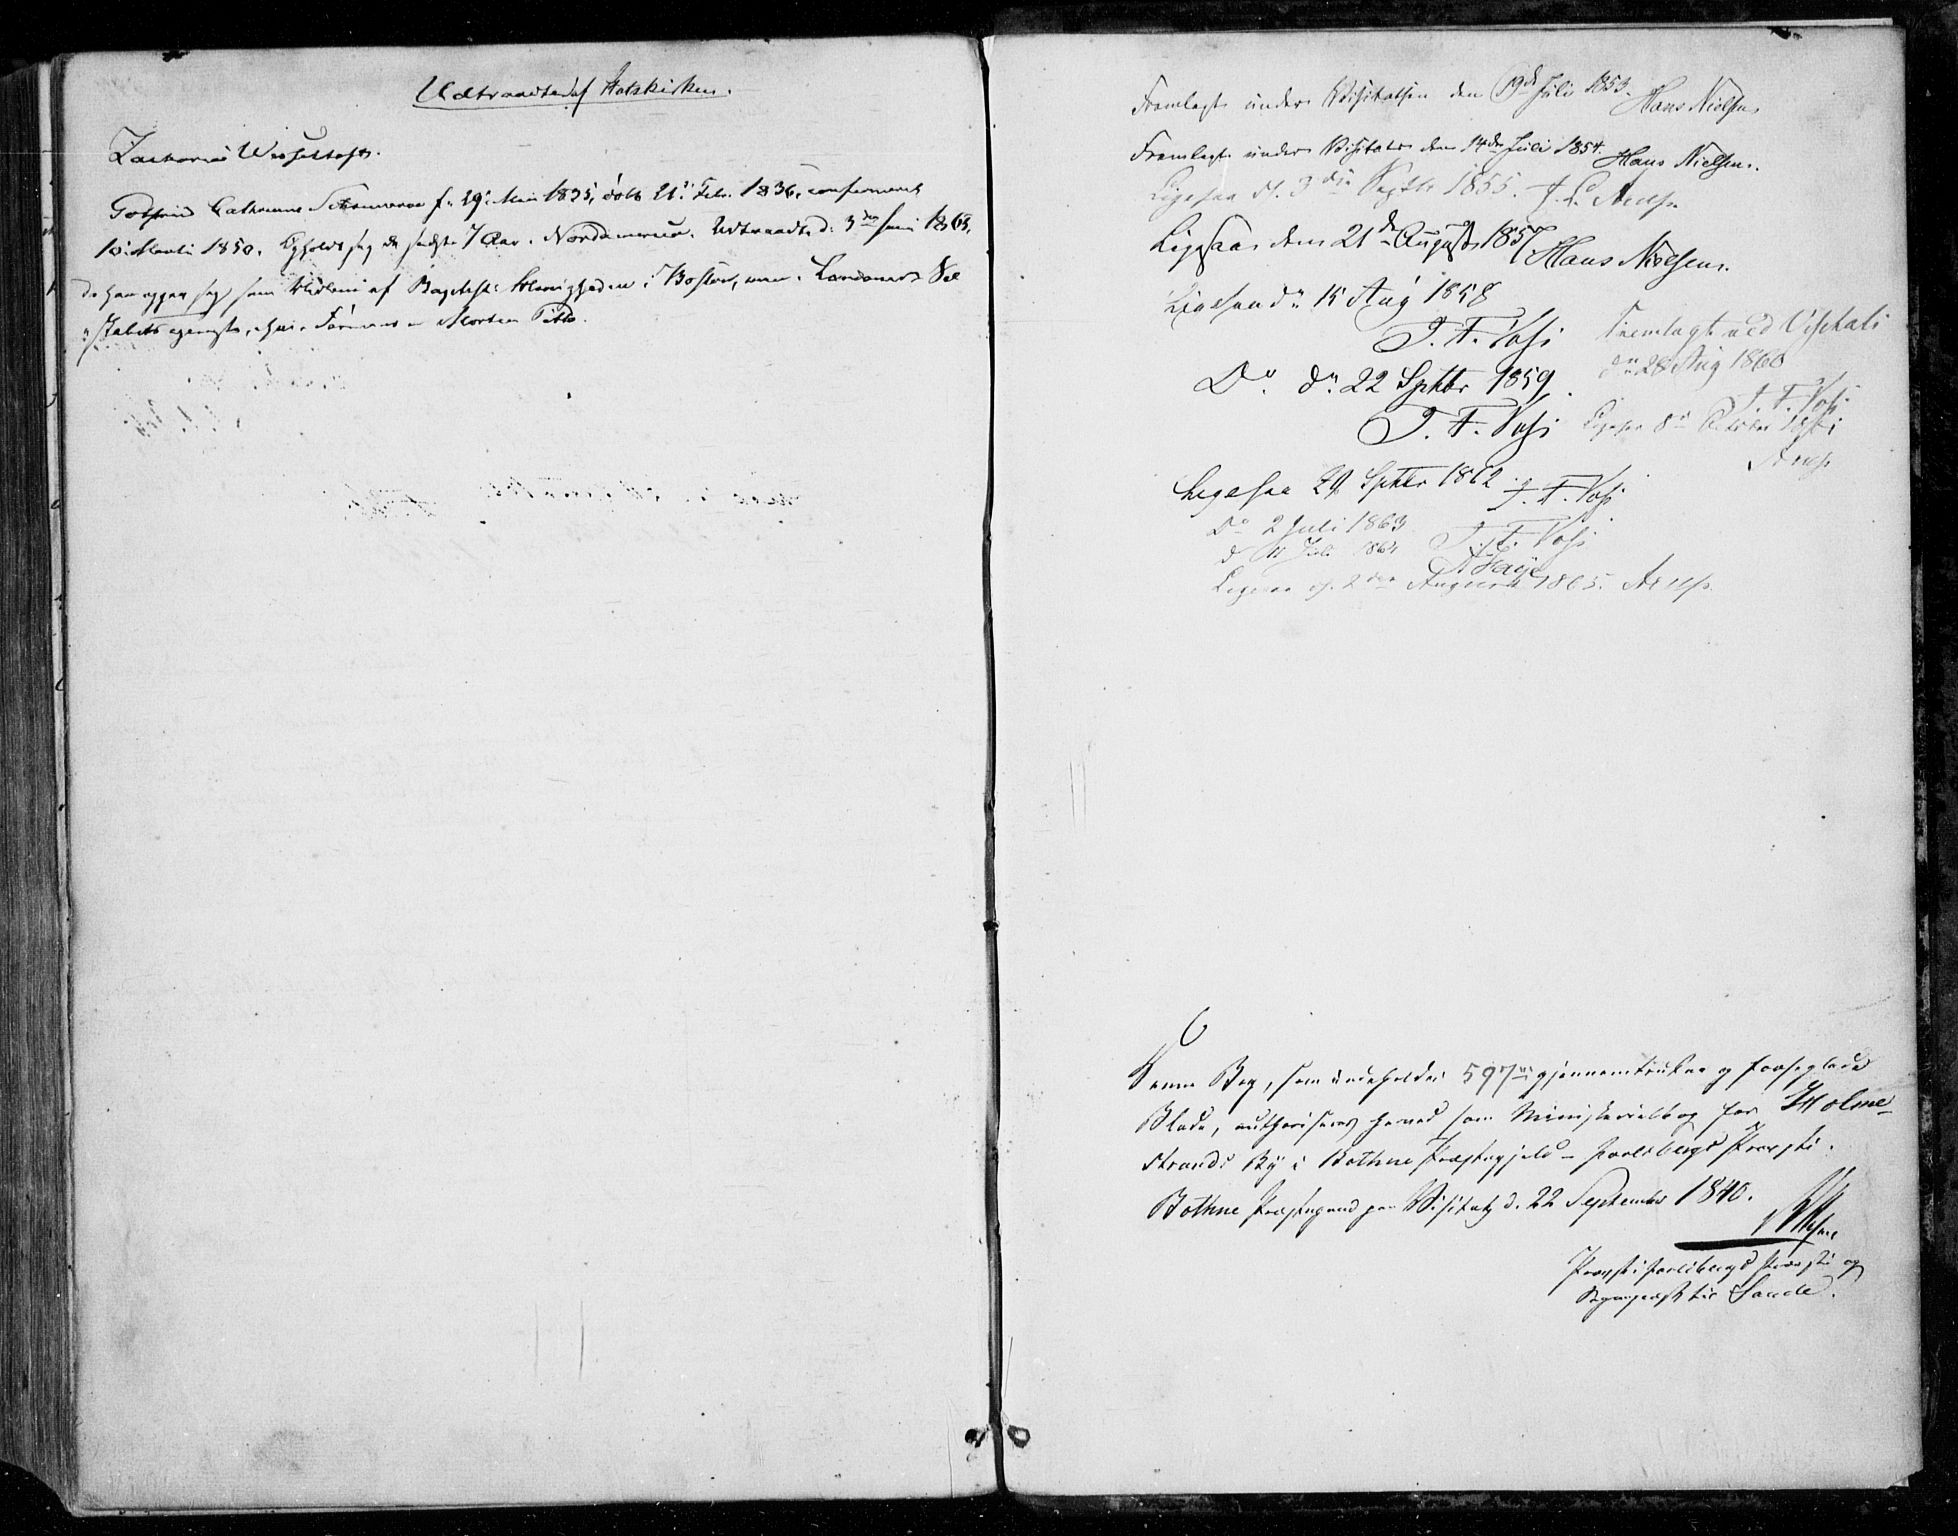 Udtraadte af Statskirken.
Zacharias Wisseltoft.
Cathrine f. 29. Mai 1835, døbt 21. Febr. 1836, confirmeret
1850. Opholdt sig de sidste 7 Aar i Nordamerica. Udtraadt d. 3die Juni 1865,
da han opgav sig som Medlem af Baptist Menigheden i Boston,
Morten
Fremlagt under Visitatsen den 19de Juli 1853. Hans Nielsen
Fremlagt under Visitats den 14de Juli 1854. Hans Nielsen.
Ligesaa d. 3die Septbr 1855. Arup
Ligesaa den 21de August 1857 Hans Nielsen.
Ligesaa dn 15 Aug 1858
J. F. Voss
Do. dn 22 Septbr 1859.
J. F. Voss
Fremlagt ved Visitats
dn 28 Aug 1860
J. F. Voss
Ligesaa 8de October 1861
Arup
Ligesaa 29 Septbr 1862 J. F. Voss
Do 2 Juli 1863 J. F. Voss
d 11 Juli 1864
Ligesaa d. 2den August 1865. Arup.
Denne Bog, som indeholder 597 gjennemtrukne og forseglede
Blade, authoriseres herved som Ministerialbog for Holme-
strands By i Bothne Præstegjeld - Jarlsbergs Provsti.
Bothne Præstegaard paa Visitats d. 22 September 1840.
Provst i Jarlsbergs Provsti og
Sognepræst til Sande.